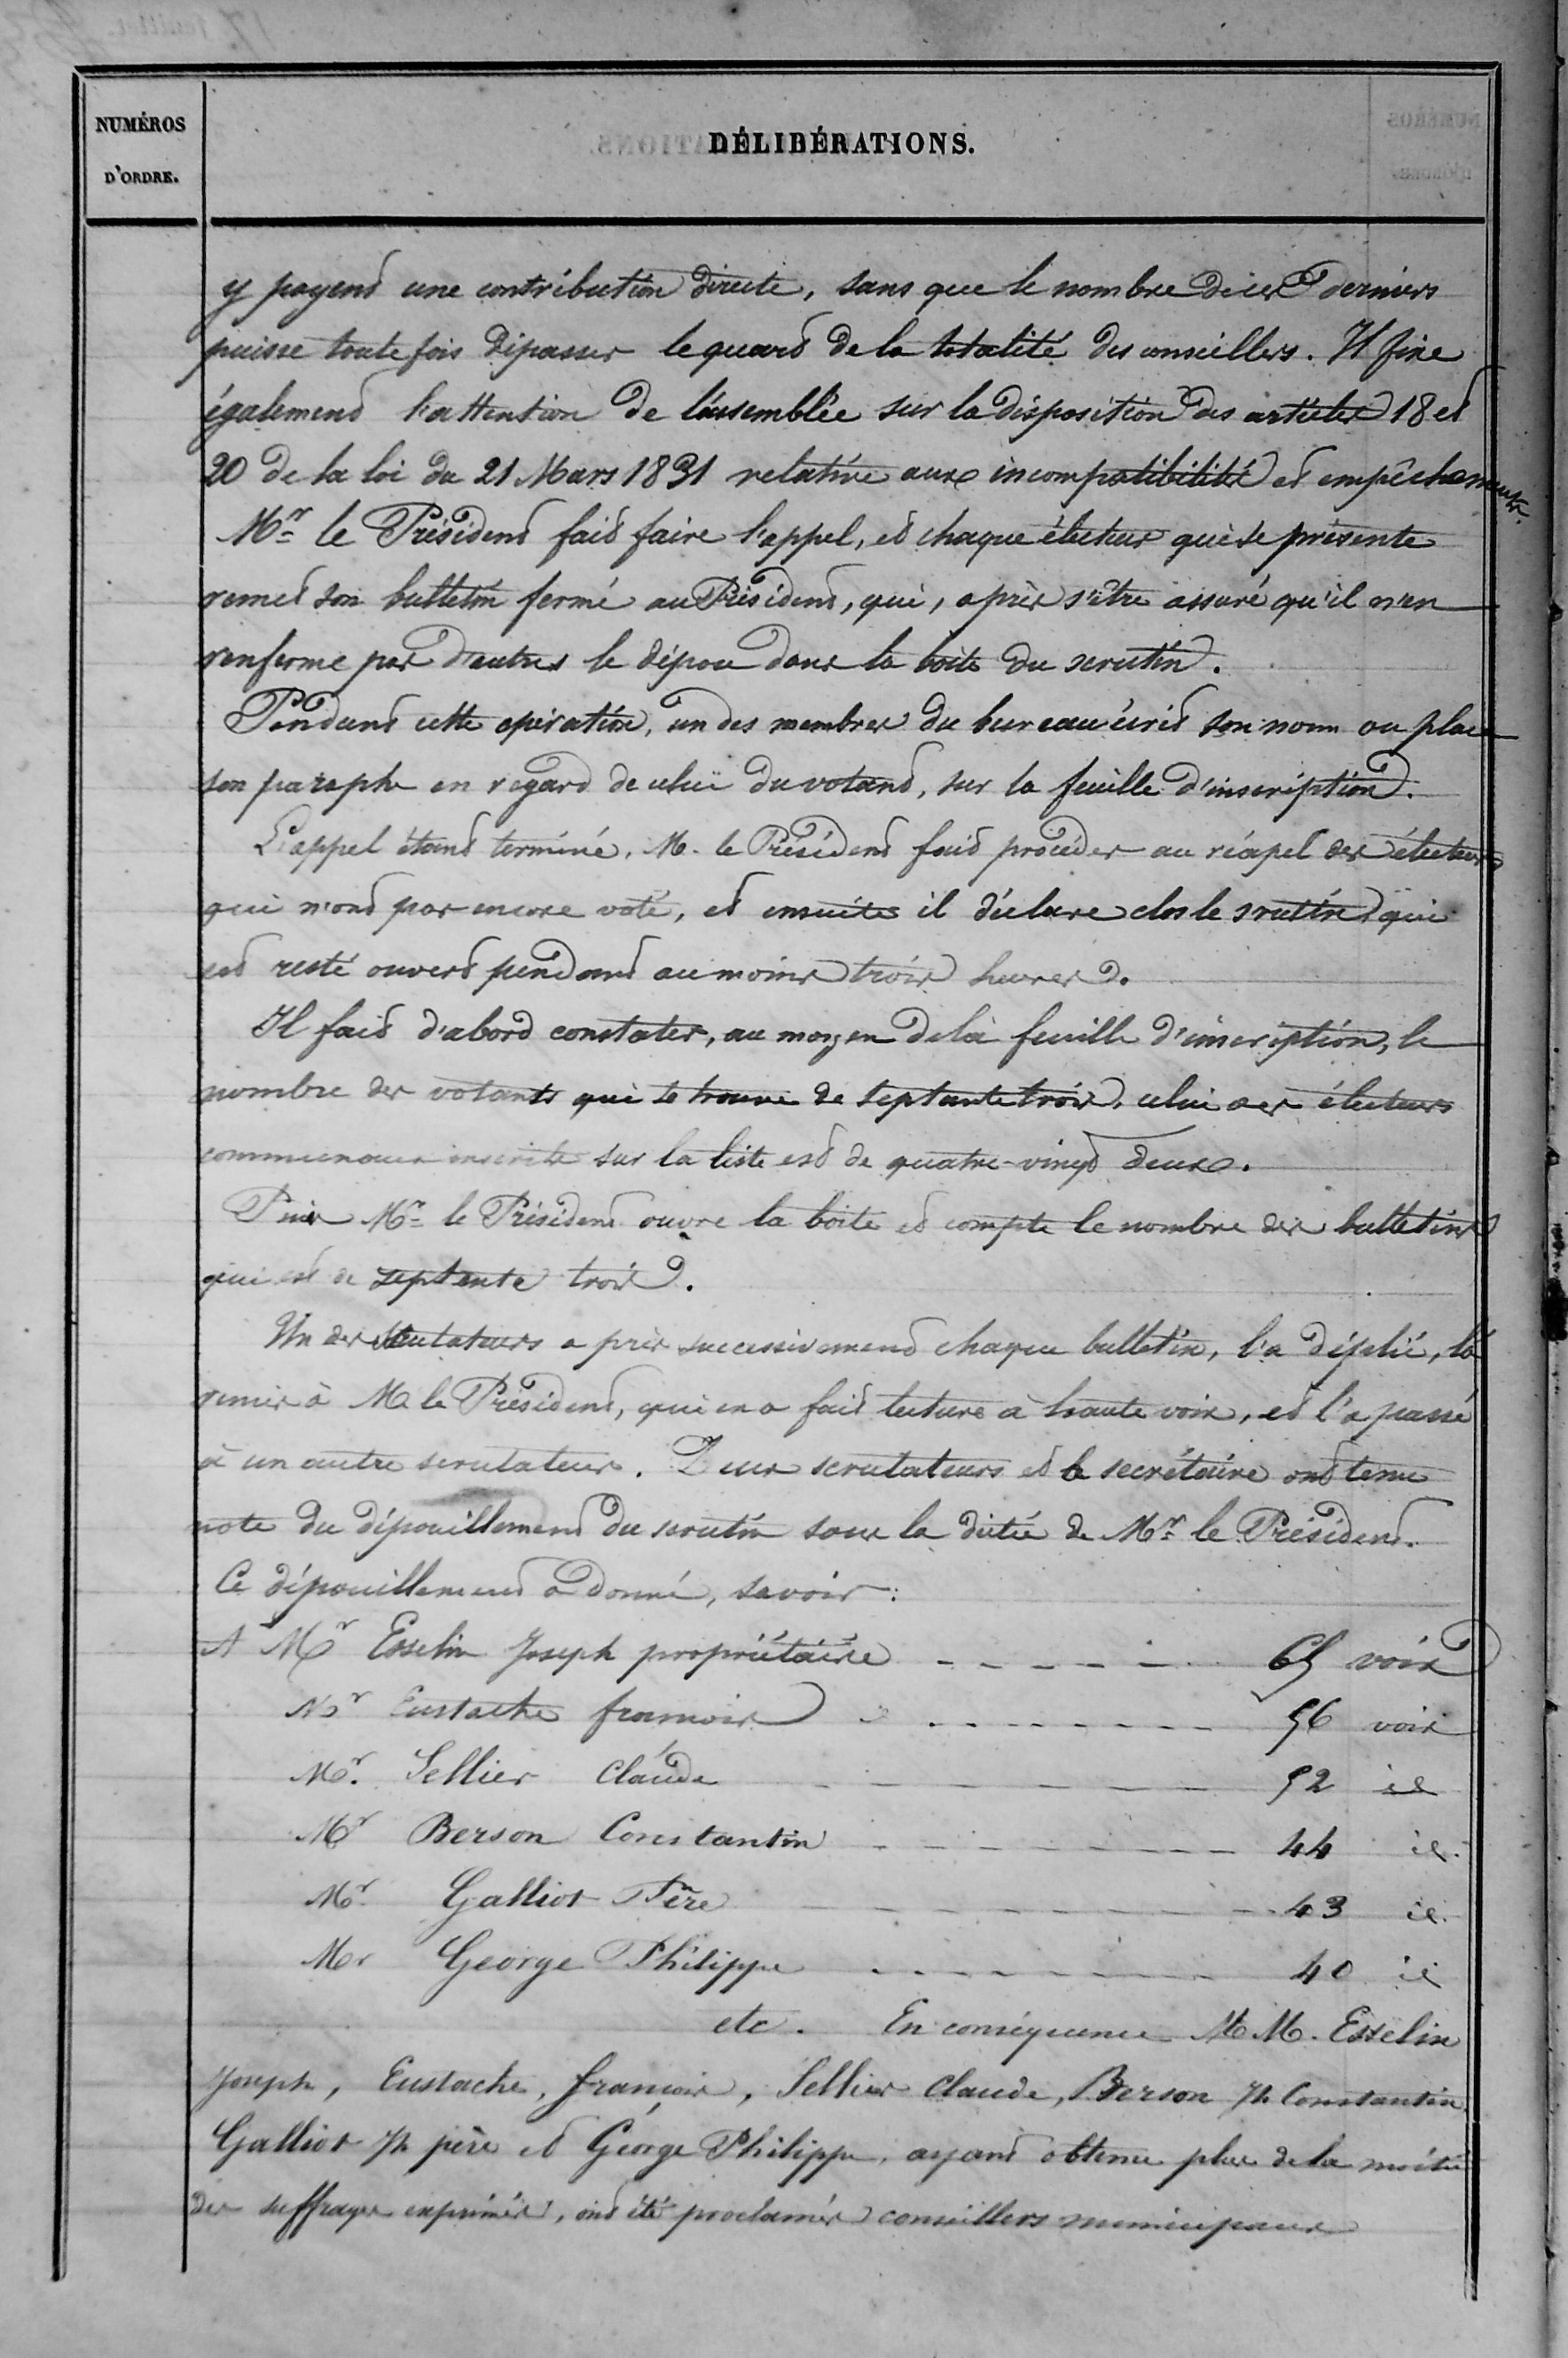 NUMÉROS
D'ORDRE.
DÉLIBÉRATIONS.
y payent une contribution directe, sans que le nombre de ces derniers
puisse toute fois dépasser le quart de la totalité des conseillers. Il fixe
également l'attention de l'assemblée sur la disposition des articles 18 et
20 de la loi du 21 Mars 1831 relative aux incompatibilités et empêchements.
Mr le Président fait faire l'appel, et chaque électeur qui se présente
remet son bulletin fermé au Président, qui, après s'être assuré qu'il n'en
renferme pas d'autres le dépose dans la boite du scrutin.
Pendant cette opération, un des membres du bureau écrit son nom ou place
son paraphe en regard de celui du votant, sur la feuille d'inscription.
L'appel étant terminé, M. le Président fait procéder au réapel des électeurs
qui n'ont pas encore voté, et ensuite il déclare clos le srutin qui
est resté ouvert pendant au moins trois heures.
Il fait d'abord constater, au moyen de la feuille d'inscription, le
nombre des votants qui se trouve de septante trois, celui des électeurs
communaux inscrits sur la liste est de quatre-vingt deux.
Puis Mr le Président ouvre la boite et compte le nombre des bulletins
qui est de septente trois.
Un des scrutateurs a pris successivement chaque bulletin, l'a déplié, l'a
remis à M le Président, qui en a fait lecture à haute voix, et l'a passé
à un autre scrutateur. Deux scrutateurs et le secrétaire ont tenu
note du dépouillement du scrutin sous la dictée de Mr le Président.
Ce dépouillement a donné, savoir:
A Mr Esselin Joseph propriétaire - - - - - - 65 voix
Mr Eustache françois - - - - - - - - 56 voix
Mr. Sellier Claude - - - - - - - - 52 id
Mr Berson Constantin - - - - - - - - 44 id.
Mr Galliot Père - - - - - - - - 43 id.
Mr George Philippe - - - - - - - - 40 id
etc. En conséquence MM. Esselin
Joseph, Eustache, françois, Sellier Claude, Berson Jh Constantin,
Galliot Jh père et George Philippe, ayant obtenu plus de la moitié
des suffrages exprimés, ont été proclamés conseillers municipaux